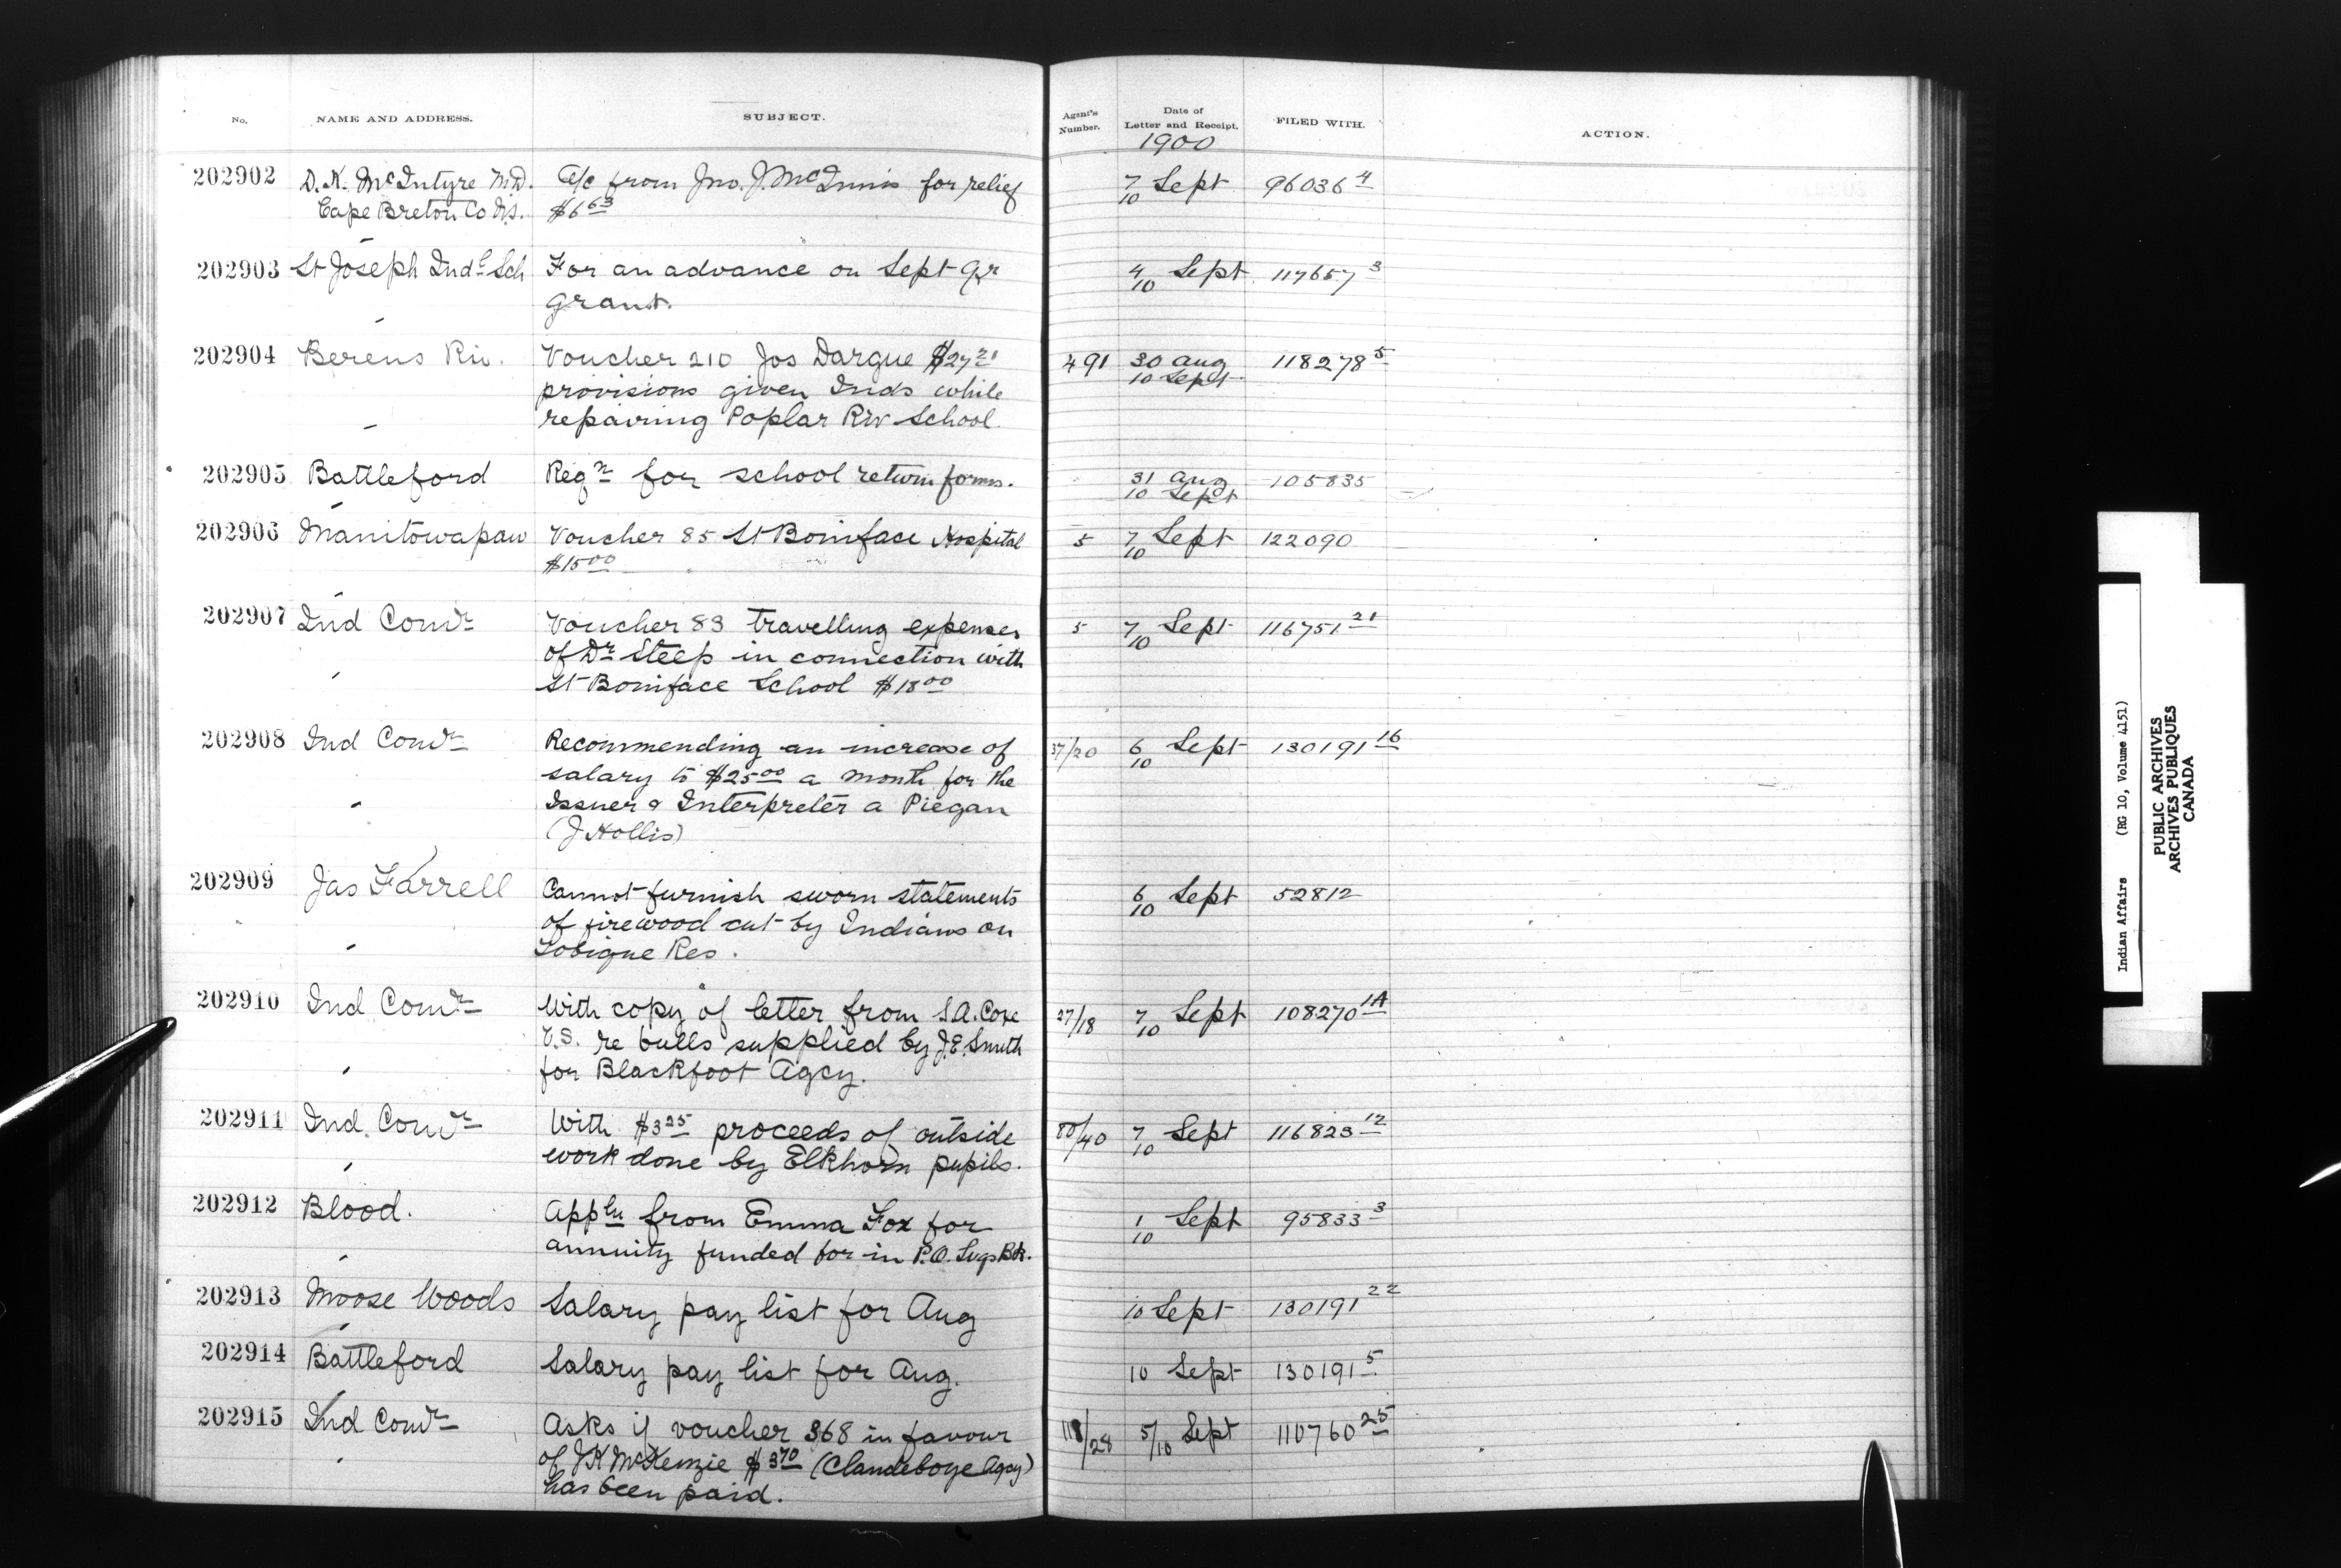 No. NAME AND ADDRESS. SUBJECT. Agent's Number. Date of Letter and Receipt. FILED WITH. ACTION.
1900
202902 D. K. McIntyre M.D. A/c from Jno. J. McInnis for relief 7 Sept 96036 4
Cape Breton Co N.S. $6 63 10
202903 St Joseph Indl Sch For an advance on Sept Qr 4 Sept 117657 3
grant. 10
202904 Berens Riv. Voucher 210 Jos Dargue $27 21 491 30 Aug 118278 5
provisions given Inds while 10 Sept
repairing Poplar Riv School
202905 Battleford Reqn for school return forms. 31 Aug 105835
10 Sept
202906 Manitowapaw Voucher 85 St Boniface Hospital 5 7 Sept 122090
$15 00 10
202907 Ind Comr Voucher 83 travelling expenses 5 7 Sept 116751 21
of Dr Steep in connection with 10
St Boniface School $18 00
202908 Ind Comr Recommending an increase of 37/20 6 Sept 130191 16
salary to $25 00 a month for the 10
Issuer & Interpreter a Piegan
(J Hollis)
202909 Jas Farrell Cannot furnish sworn statements 6 Sept 52812
of firewood cut by Indians on 10
Tobique Res.
202910 Ind Comr With copy of letter from S.A. Coxe 27/18 7 Sept 108270 1A
V.S. re bulls supplied by J.E. Smith 10
for Blackfoot Agcy.
202911 Ind. Comr With $3 25 proceeds of outside 80/40 7 Sept 116823 12
work done by Elkhorn pupils. 10
202912 Blood. Appln from Emma Fox for 1 Sept 95833 3
annuity funded for in P.O. Svgs Bk. 10
202913 Moose Woods Salary pay list for Aug 10 Sept 130191 22
202914 Battleford Salary pay list for Aug. 10 Sept 130191 5
202915 Ind Comr Asks if voucher 368 in favour 118/28 5/10 Sept 110760 25
of J K McKenzie $3 70 (Clandeboye Agcy)
has been paid.
Indian Affairs (RG 10, Volume 4151)
PUBLIC ARCHIVES
ARCHIVES PUBLIQUES
CANADA